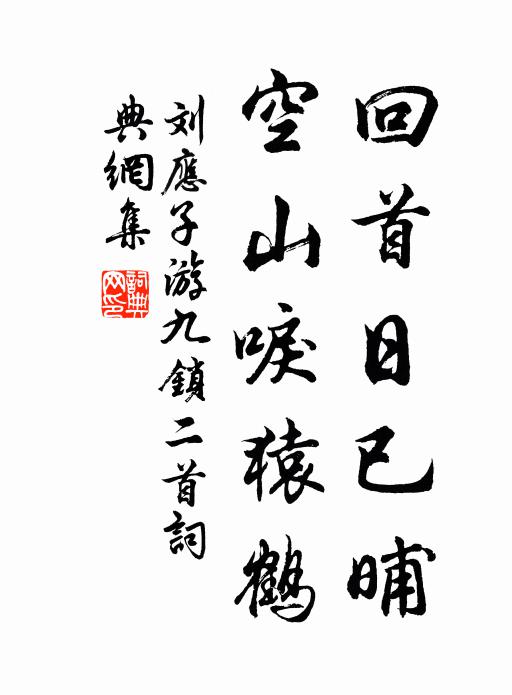 回首日已晡
空山唳猿鶴
刘應子游九鎖二首詞
典網集
詞典网印